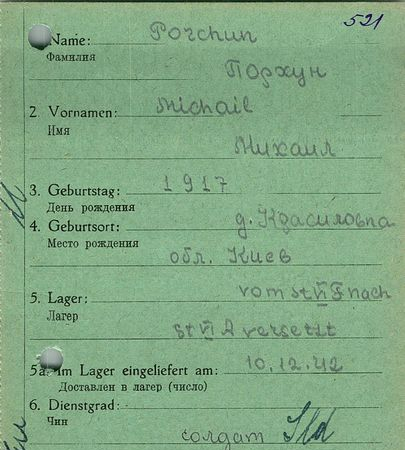 521
Name: Porchun
Фамилия
Порхун
2. Vornamen: Michail
Имя
Михаил
3. Geburtstag: 1917
День рождения
4. Geburtsort: д. Красиловка
Место рождения
обл. Киев
5. Lager: vom St VI F nach
Лагер
St VI A versetzt
5a. Im Lager eingeliefert am: 10.12.42
Доставлен в лагер (число)
6. Dienstgrad:
Чин
солдат Sld